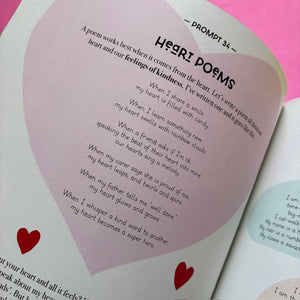 — PROMPT 34 —
HEART POEMS
A poem works best when it comes from the heart. Let's write a poem all about our
heart and our feelings of kindness. I've written one and it goes like this:
When I share a smile
my heart is filled with candy
When I learn something new
my heart swells with rainbow clouds
When a friend asks if I'm ok
speaking the beat of their heart into mine
our hearts sing a melody
When my carer says she is proud of me
my heart leaps and twirls and spins
When my father tells me 'well done'
my heart glows and grows
When I whisper a kind word to another
my heart becomes a super hero
your heart and all it feels?
speak about my
I am